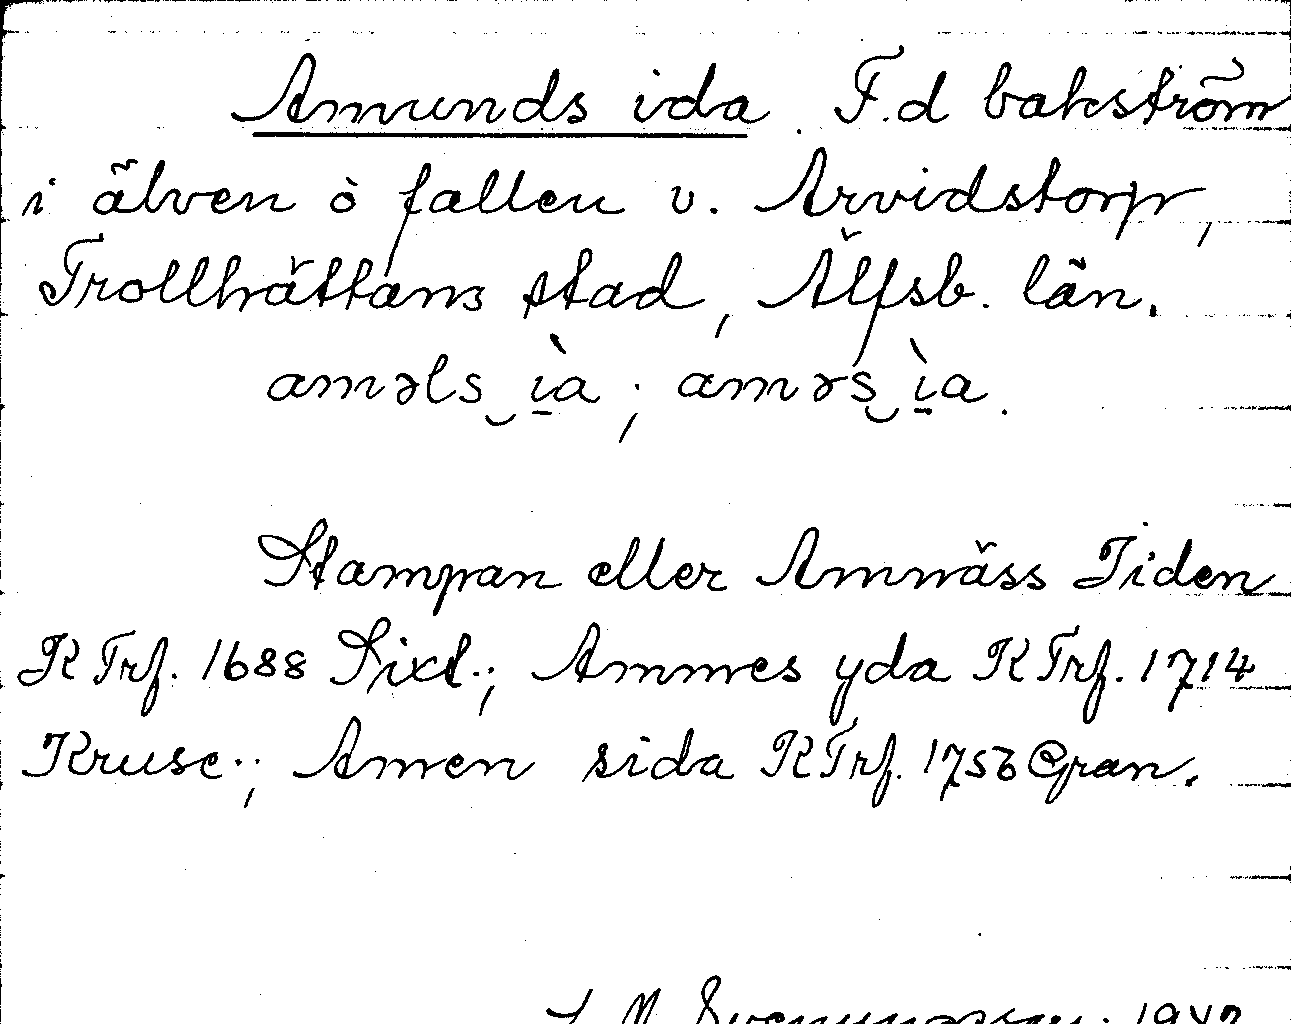 Amunds ida. F.d bakström
i älven ò fallen v. Arvidstorp,
Trollhättans stad, Älfsb. län.
aməls‿ìa; amərs‿ìa.
Stampan eller Amnäss Iiden
K Trf. 1688 Sixt.; Ammes yda K Trf. 1714
Kruse.; Amen sida K Trf. 1756 Gran.